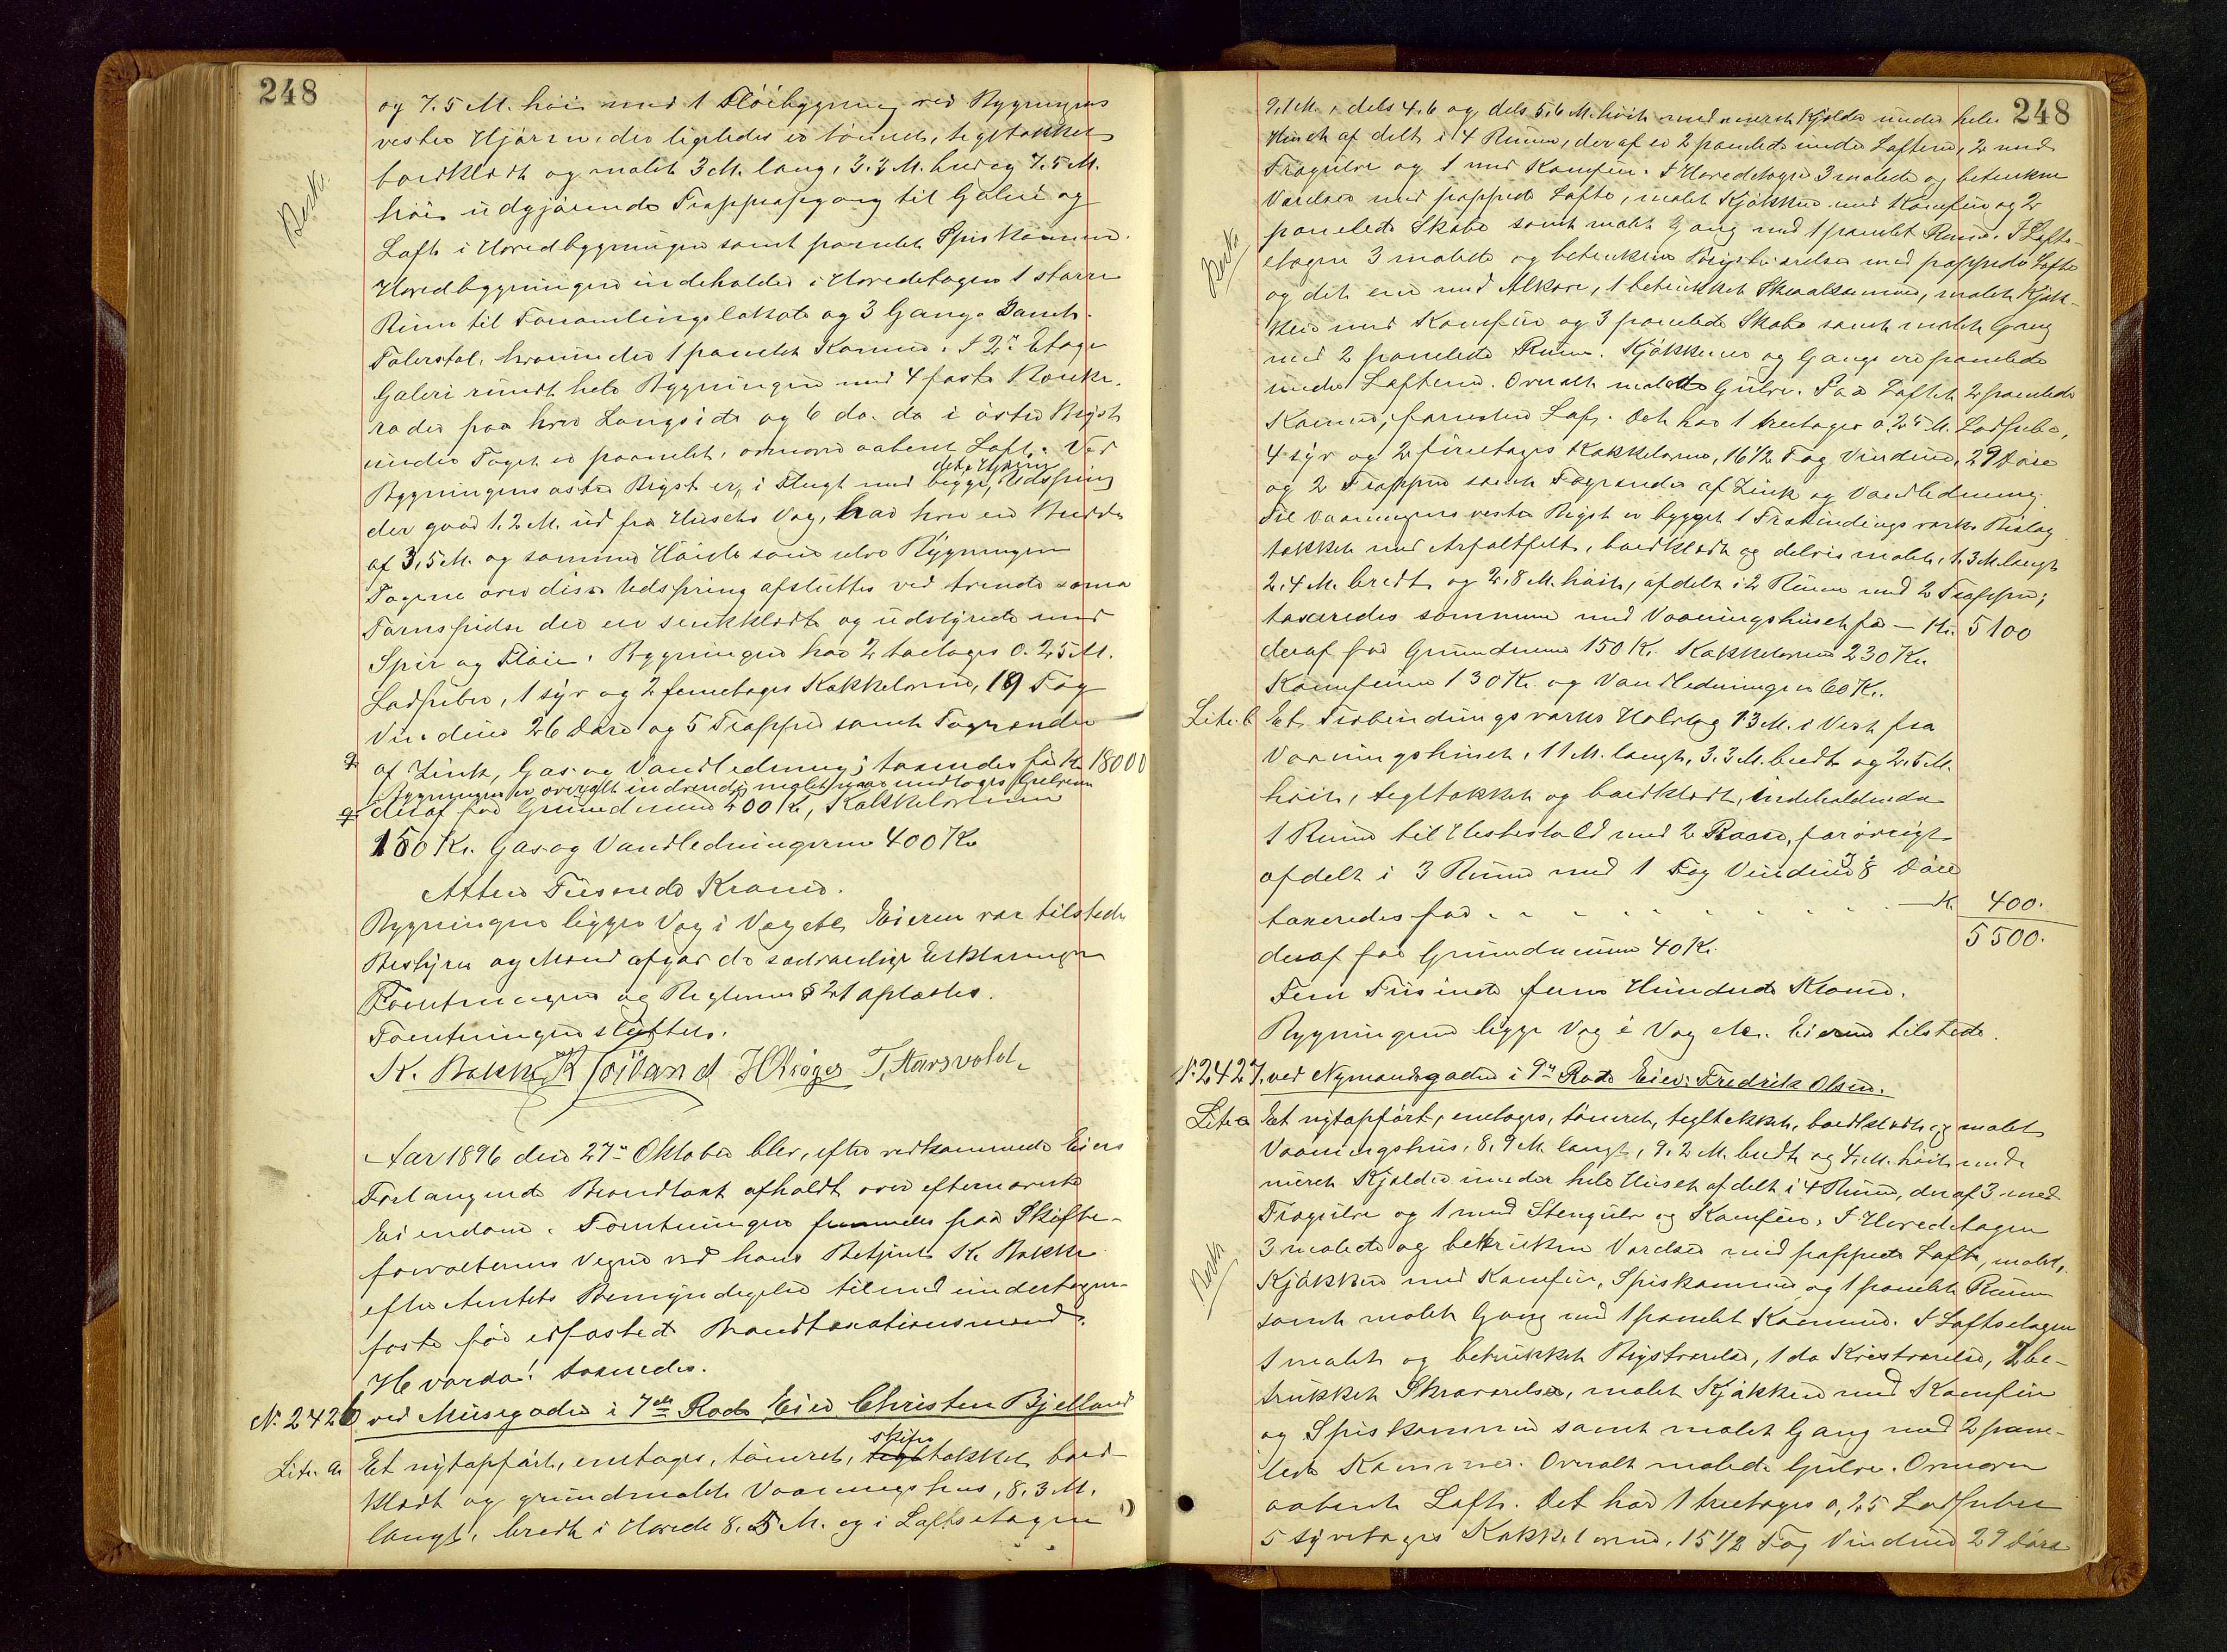 248
og 7.5 M. høi med 1 Fløibygning ved Bygningens
vestre Hjørne, der ligeledes er tømret, tegltækket
bordklædt og malet 3 M. lang, 3.3 M. bred og 7.5 M.
høi udgjørende Trappeopgang til Galeri og
Besk.
Loft i Hovedbygningen samt panelet Spiskammer.
Hovedbygningen indeholder i Hovedetagen 1 større
Rum til Forsamlingslokale og 3 Gange samt
Talerstol, hvorunder 1 panelet Kammer. I 2n Etage
Galeri rundt hele Bygningen med 4 faste Bænke-
rader paa hver Langside og 6 do. do i østre Bryst
under Taget er panelet, ovenover aabent Loft. Ved
Bygningens østre Bryst er, i Flugt med begge, Udspring
det Hjørne
der gaar 1.2 M. ud fra Husets Væg, har hver en Bredde
af 3,5 M. og samme Høide som selve Bygningen
Tagene over disse Udspring afsluttes ved trende
Taarnspidse der er sinkklædte og udstyrede med
Spir og Fløie. Bygningen har 2 toetages 0.25 M.
Ladpiber, 1 syv og 2 femetages Kakkelovne, 19 Fag
Vinduer 26 Døre og 5 Trapper samt Tagrender
af Zink, Gas- og Vandledning; taxeredes for Kr. 18000
Bygningen er overalt indvendig malet undtages Gulvene
deraf for Grundmuren 200 Kr, Kakkelovnene
150 Kr. Gas og Vandledningerne 400 Kr
Atten Tusende Kroner.
Bygningen ligger Væg i Væg etc. Eieren var tilstede
Bestyrer og Mænd afgav de sædvanlige Erklæringer
Forretningen og Reglernes § 21 oplæstes.
Forretningen sluttes.
K. Bakke
T. Aarsvold.
Aar 1896 den 27de Oktober blev, efter vedkommende Eiers
Forlangende Brandtaxt afholdt over efternævnte
Eiendom. Forretningen fremmedes paa Skifte-
forvalterens Vegne ved hans Betjent K. Bakke
efter Amtets Bemyndigelse tilmed undertegnede
faste for edfæstede Brandtaxationsmænd.
Hvorda! taxeredes.
No. 2426 ved Musegaden i 7de Rode Eier Christen Bjelland
skifer
Litr. a Et nytopført, enetages, tømret, tegltækket bord-
klædt og grundmalet Vaaningshus, 8.3 M.
langt, bredt i Hovede 8.5 M. og i Loftsetagen
248
9.1 M., dels 4.6 og dels 5.6 M. høit med muret Kjelder under hele
Huset afdelt i 4 Rum, deraf er 2 panelede under Lofterne, 2 med
Trægulve og 1 med Komfur. I Hovedetagen 3 malede og betrukne
Værelser med pappede Lofte, malet Kjøkken med Komfur og 2
panelede Skabe samt malet Gang med 1 panelet Rum. I Lofts-
Besk
etagen 3 malede og betrukne Brystværelser med pappede Lofte
og det ene med Alkove, 1 betrukket Skraakammer, malet Kjøk-
ken med Komfur og 3 panelede Skabe samt malet Gang
med 2 panelede Rum. Kjøkkener og Gange ere panelede
under Lofterne. Overalt malede Gulve. Paa Loftet 2 panelede
Kammer, forresten Loft. Det har 1 treetages 0,25 M. Ladpibe,
4 syv og 2 fireetages Kakkelovne, 16 1/2 Fag Vinduer, 29 Døre
og 2 Trapper samt Tagrender af Zink og Vandledning.
Til Vaaningens vestre Bryst er bygget 1 Træbindingsværks Bislag
tækket med Asfaltfelt, bordklædt og delvis malet, 1.3 M langt
2.4 M. bredt og 2.8 M. høit, afdelt i 2 Rum med 2 Trapper;
taxeredes sammen med Vaaningshuset for — Kr. 5100
deraf for Grundmuren 150 Kr. Kakkelovne 230 Kr.
Komfurene 130 Kr. og Vandledningen 60 Kr.
Litr. b Et Træbindingsværks Halvtag 13 M. i Vest fra
Vaaningshuset, 11 M. langt, 3.3 M. bredt og 2.5 M.
høit, tegltækket og bordklædt, indeholdende
1 Rum til Hestestald med 2 Baase, forøvrigt
afdelt i 3 Rum med 1 Fag Vinduer 8 Døre
taxeredes for — Kr. 400.
5500.
deraf for Grundmuren 40 Kr.
Fem Tusinde fem Hundrede Kroner.
Bygningerne ligge Væg i Væg etc. Eieren tilstede.
No. 2427. ved Nymandsgaden i 9de Rode Eier: Fredrik Olsen.
Litr. a Et nytopført, enetages, tømret, tegltækket, bordklædt og malet
Vaaningshus, 8.9 M. langt, 9.2 M. bredt og 4. M. høit med
muret Kjelder under hele Huset afdelt i 4 Rum, deraf 3 med
Trægulve og 1 med Stengulv og Komfur. I Hovedetagen
3 malede og betrukne Værelser med pappede Lofte, malet
Besk
Kjøkken med Komfur, Spiskammer og 1 panelet Rum
samt malet Gang med 1 panelet Kammer. I Loftsetagen
1 malet og betrukket Brystværelse, 1 do Kvistværelse, 2 be-
trukket Skraaværelse, malet Kjøkken med Komfur
og Spiskammer samt malet Gang med 2 pane-
lede Kammer. Overalt malede Gulve. Ovenover
aabent Loft. Det har 1 treetages 0,25 Ladpiber
5 syvetages Kakkelovne, 15 1/2 Fag Vinduer 29 Døre